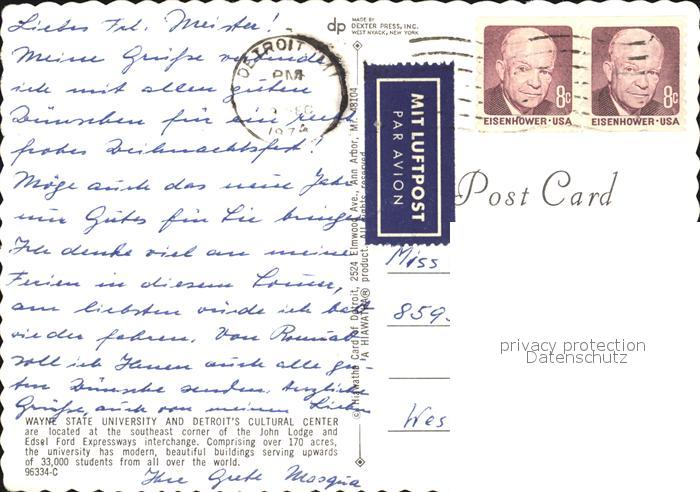 Liebes Frl. Meister!
Meine Grüße verbinde
ich mit allen guten
Wünschen für ein recht
frohes Weihnachtsfest!
Möge auch das neue Jahr
nur Gutes für Sie bringen
Ich denke viel an meine
Ferien in diesem Sommer,
am liebsten würde ich bald
wieder fahren. Von
soll ich Ihnen auch alle gu-
ten Wünsche senden. Herzliche
Grüße, auch von meinen Lieben
Ihre Grete
WAYNE STATE UNIVERSITY AND DETROIT'S CULTURAL CENTER
are located at the southeast corner of the John Lodge and
Edsel Ford Expressways interchange. Comprising over 170 acres,
the university has modern, beautiful buildings serving upwards
of 33,000 students from all over the world.
96334-C
dp
MADE BY
DEXTER PRESS, INC.
WEST NYACK, NEW YORK
DETROIT
PM
© Hiawatha Card of Detroit, 2524 Elmwood Ave., Ann Arbor, Mi. 48104
"A HIAWATHA® product. All rights reserved.
MIT LUFTPOST
PAR AVION
8c
EISENHOWER·USA
8c
EISENHOWER·USA
Post Card
Miss
859
Wes
privacy protection
Datenschutz